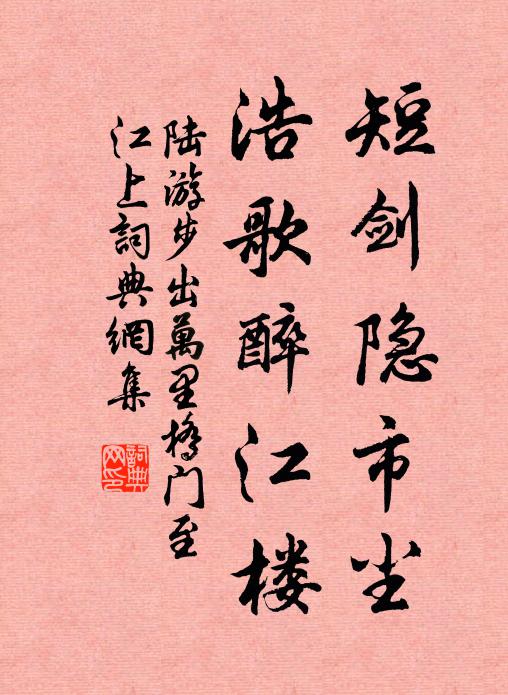 短剑隐市尘
浩歌醉江楼
陆游步出萬里桥门至
江上詞典網集
詞典
网印